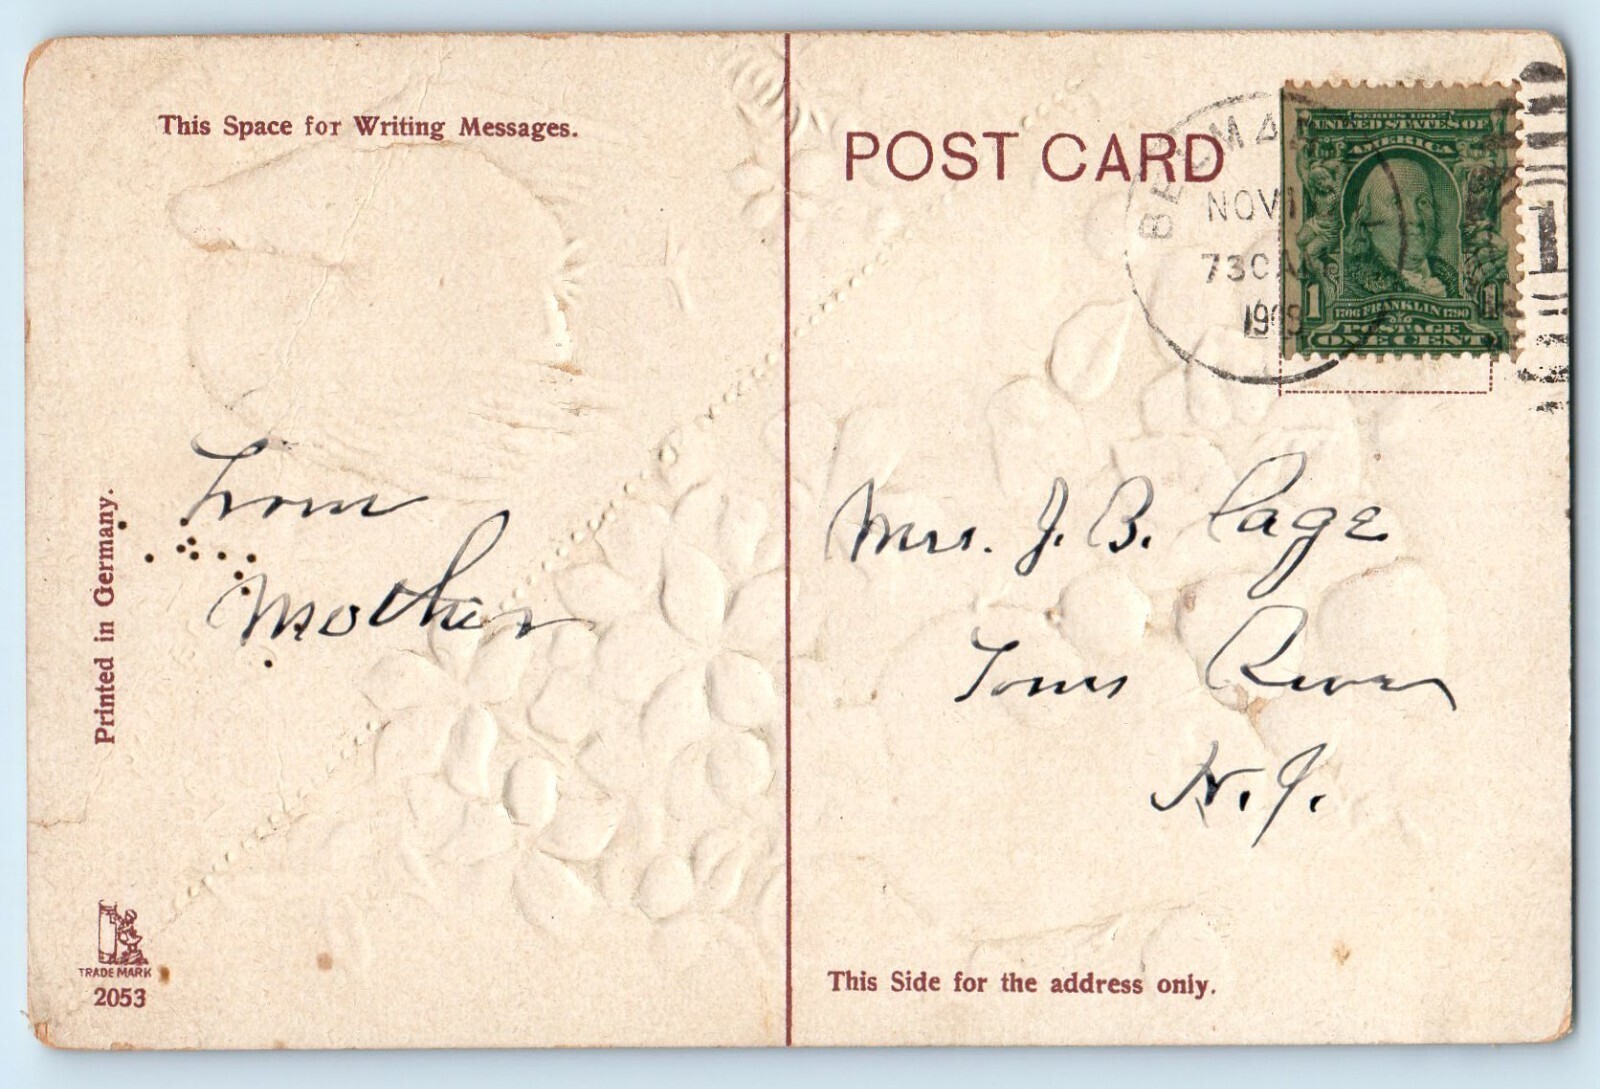 This Space for Writing Messages.
From
Mother
Printed in Germany.
TRADE MARK
2053
POST CARD
BELMAR
NOV 1
730 AM
SERIES 1902
UNITED STATES OF
AMERICA
1
1706 FRANKLIN 1790
1
POSTAGE
ONE CENT
Mrs. J. B. Page
Toms River
N. J.
This Side for the address only.